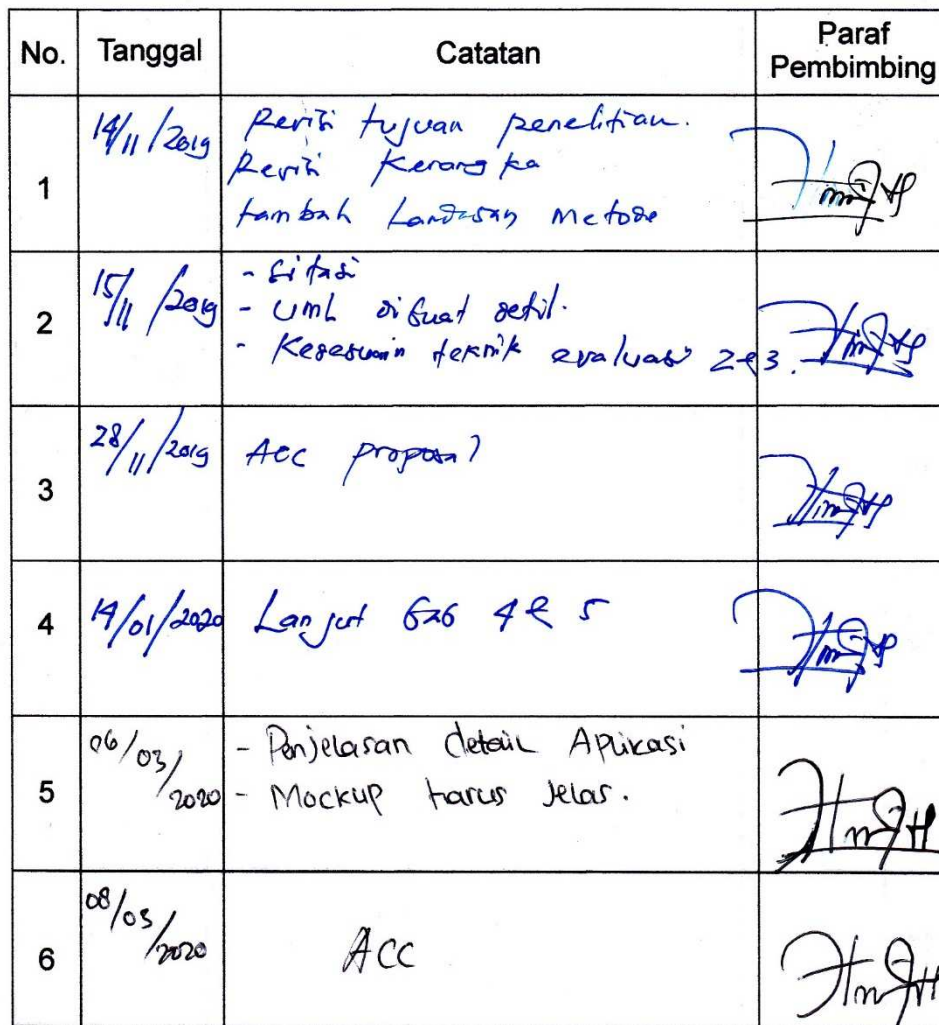 No. Tanggal Catatan Paraf Pembimbing
1 14/11/2019 Revisi tujuan penelitian.
Revisi Kerangka
tambah Landasan Metode
2 15/11/2019 - Sitasi
- UML dibuat detil.
- Kesesuain teknik evaluasi 2&3.
3 28/11/2019 Acc proposal
4 14/01/2020 Lanjut bab 4 & 5
5 06/03/2020 - Penjelasan detail Aplikasi
- Mockup harus jelas.
6 08/05/2020 ACC